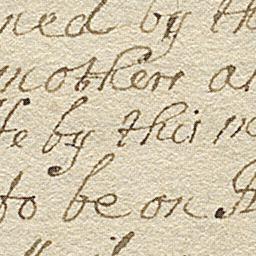 ned by th
mothers an
fe by this me
to be on